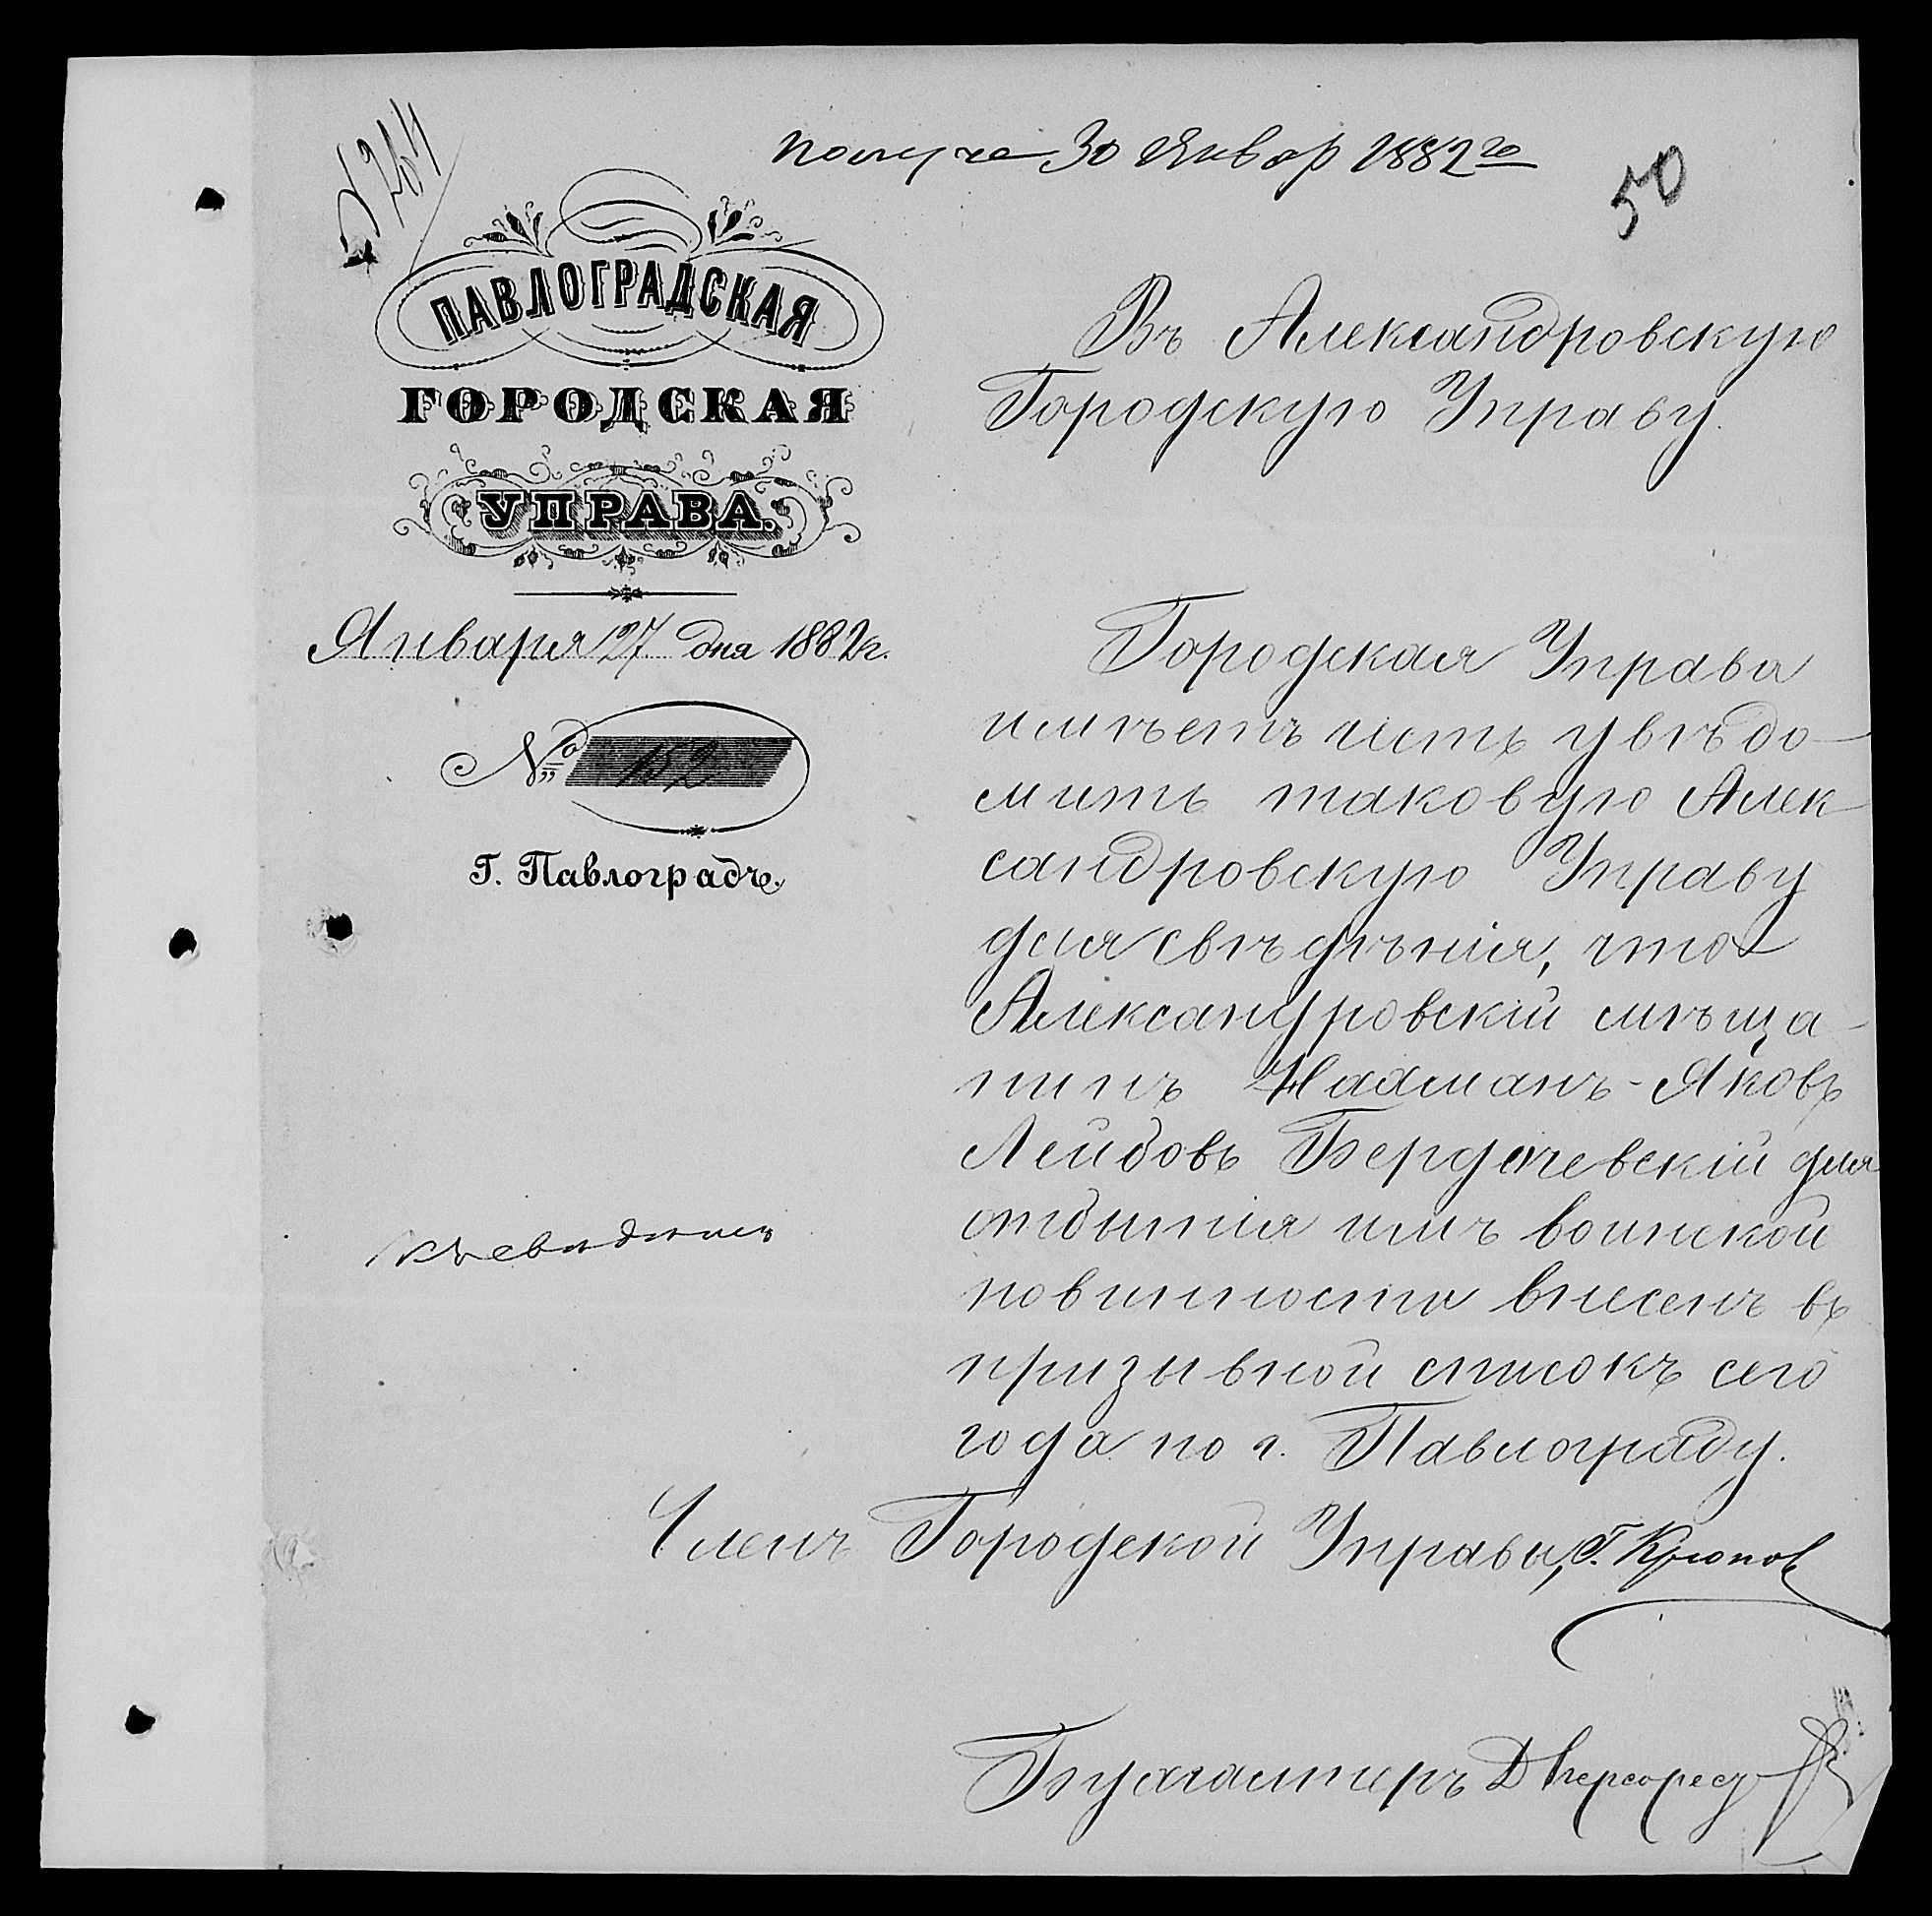 № 264
получе 30 Январ 1882 го
50
ПАВЛОГРАДСКАЯ
ГОРОДСКАЯ
УПРАВА.
Января 27 дня 1882 г.
№ 152
Г. Павлоградъ.
Въ Александровскую
Городскую Управу.
Городская Управа
имѣетъ честь увѣдо-
мить таковую Алек
сандровскую Управу
для свѣдѣнія, что
Александровскій мѣща-
нинъ Нахманъ-Яковъ
Лейбовъ Бердичевскій для
отбытія имъ воинской
повинности внесенъ въ
призывной списокъ сего
года по г. Павлограду.
Членъ Городской Управы, Г. Крюков
Бухгалтеръ Д